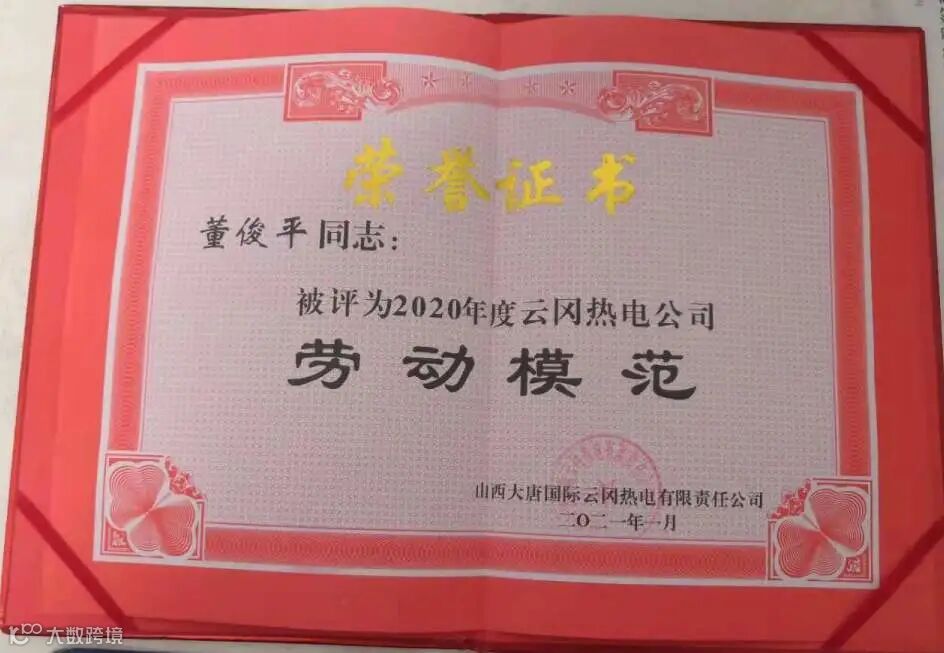 荣誉证书
董俊平同志：
被评为2020年度云冈热电公司
劳动模范
山西大唐国际云冈热电有限责任公司
二〇二一年一月
大数跨境